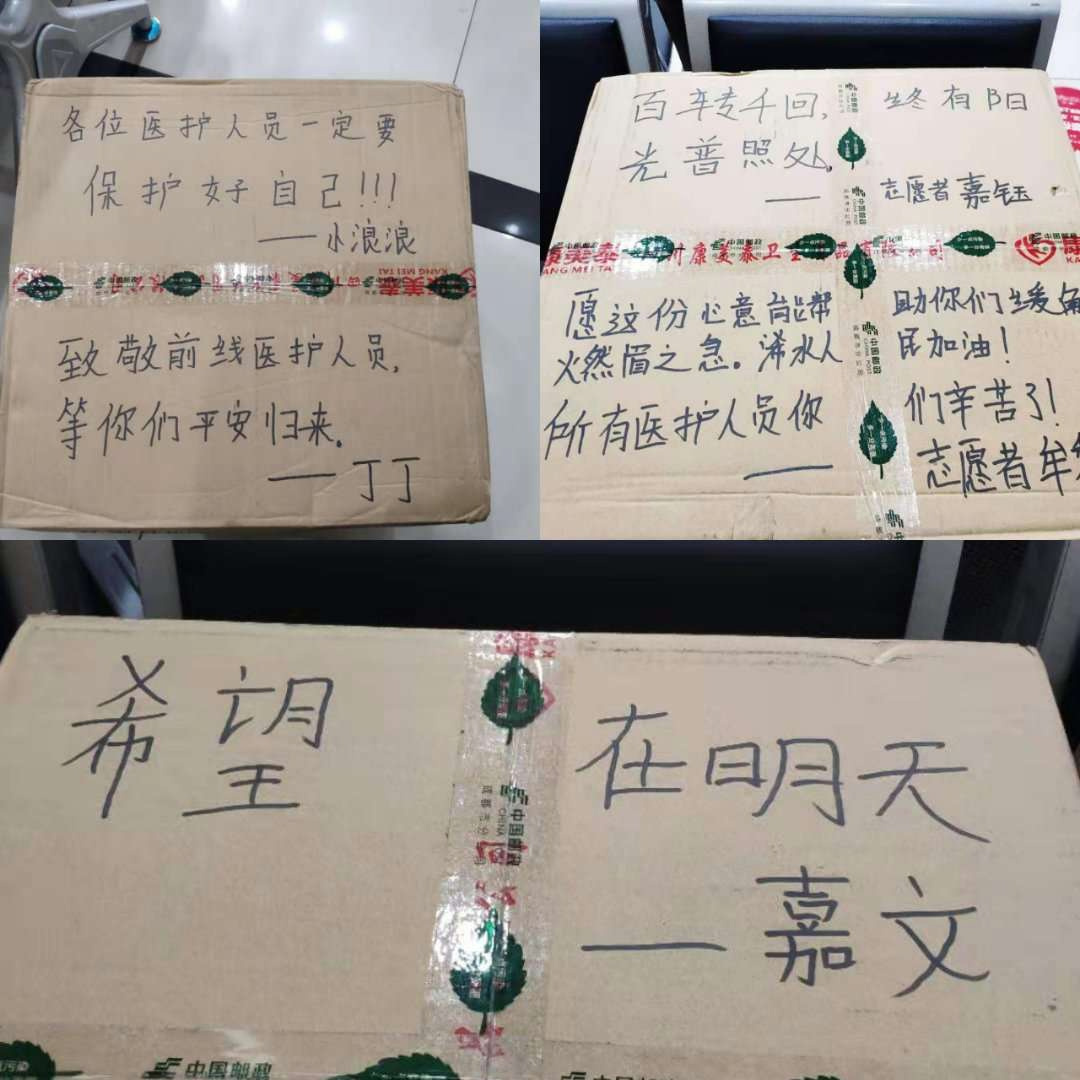 各位医护人员一定要
保护好自己!!!
——小浪浪
KANG MEI TAI
致敬前线医护人员,
等你们平安归来。
——丁丁
百转千回, 终有阳
光普照处,
——志愿者嘉钰
中国邮政
康美泰卫
KANG MEI TAI
愿这份心意能帮助你们缓解
火燃眉之急。浠水人民加油!
所有医护人员你们辛苦了!
——志愿者牟
中国邮政
CHINA POST
希望在明天
——嘉文
中国邮政
CHINA
成都市分
公司
中国邮政
污染